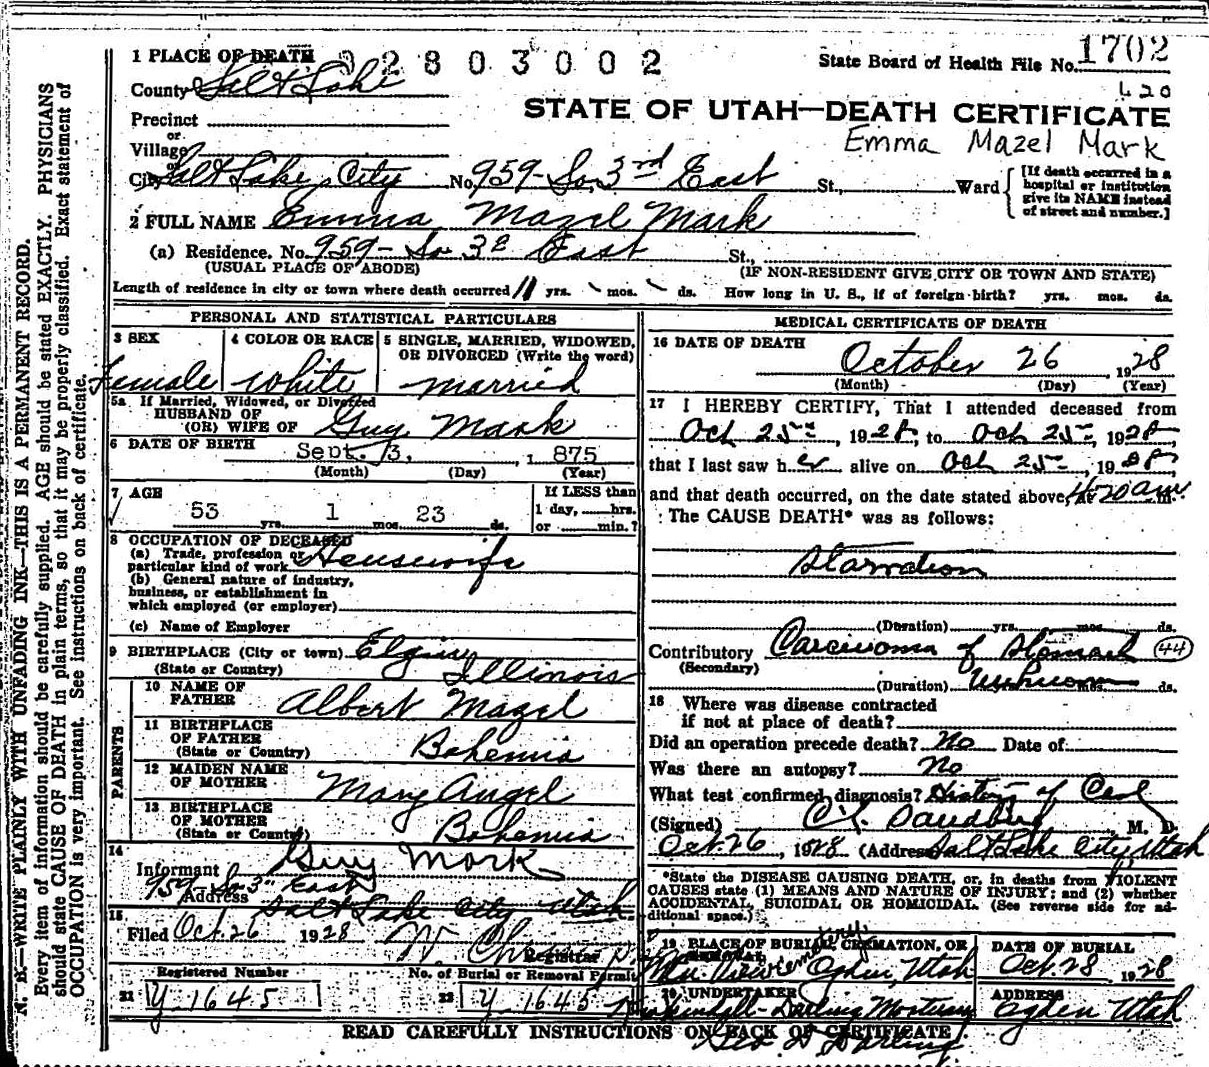 1 PLACE OF DEATH 32803002
State Board of Health File No. 1702
County Salt Lake
L 20
STATE OF UTAH—DEATH CERTIFICATE
Precinct
or
Village
Emma Mazel Mark
or
City Salt Lake City No. 959 - So. 3rd East St., Ward
[If death occurred in a hospital or institution give its NAME instead of street and number.]
2 FULL NAME Emma Mazel Mark
(a) Residence. No. 959 - So 3d East St.,
(USUAL PLACE OF ABODE) (IF NON-RESIDENT GIVE CITY OR TOWN AND STATE)
Length of residence in city or town where death occurred 11 yrs. mos. ds. How long in U. S., if of foreign birth? yrs. mos. ds.
PERSONAL AND STATISTICAL PARTICULARS
3 SEX
Female
4 COLOR OR RACE
White
5 SINGLE, MARRIED, WIDOWED, OR DIVORCED (Write the word)
Married
5a If Married, Widowed, or Divorced
HUSBAND OF
(OR) WIFE OF Guy Mark
6 DATE OF BIRTH Sept. 3, 1875
(Month) (Day) (Year)
7 AGE
53 yrs. 1 mos. 23 ds.
If LESS than
1 day, hrs.
or min.?
8 OCCUPATION OF DECEASED
(a) Trade, profession or
particular kind of work Housewife
(b) General nature of industry,
business, or establishment in
which employed (or employer)
(c) Name of Employer
9 BIRTHPLACE (City or town) Elgin
(State or Country) Illinois
PARENTS
10 NAME OF
FATHER Albert Mazel
11 BIRTHPLACE
OF FATHER
(State or Country) Bohemia
12 MAIDEN NAME
OF MOTHER Mary Angel
13 BIRTHPLACE
OF MOTHER
(State or Country) Bohemia
14
Informant Guy Mark
Address 959 So 3rd East
Salt Lake City Utah
15
Filed Oct. 26 1928 Registrar
Registered Number No. of Burial or Removal Permit
21 Y 1645 22 Y 1645
MEDICAL CERTIFICATE OF DEATH
16 DATE OF DEATH
October 26 1928
(Month) (Day) (Year)
17 I HEREBY CERTIFY, That I attended deceased from
Oct 25, 1928, to Oct 25, 1928,
that I last saw her alive on Oct 25, 1928
and that death occurred, on the date stated above, at 4:20 am.
The CAUSE DEATH* was as follows:
Starvation
(Duration) yrs. mos. ds.
Contributory Carcinoma of Stomach 44
(Secondary)
(Duration) Unknown mos. ds.
18 Where was disease contracted
if not at place of death?
Did an operation precede death? No Date of
Was there an autopsy? No
What test confirmed diagnosis? History of Case
(Signed) M. D.
Oct. 26, 1928 (Address) Salt Lake City, Utah
*State the DISEASE CAUSING DEATH, or, in deaths from VIOLENT
CAUSES state (1) MEANS AND NATURE OF INJURY; and (2) whether
ACCIDENTAL, SUICIDAL OR HOMICIDAL. (See reverse side for additional space.)
19 PLACE OF BURIAL, CREMATION, OR
REMOVAL
Ogden, Utah
DATE OF BURIAL
Oct. 28 1928
20 UNDERTAKER
Darling Mortuary
Geo. D. Darling
ADDRESS
Ogden Utah
READ CAREFULLY INSTRUCTIONS ON BACK OF CERTIFICATE
N. B.—WRITE PLAINLY WITH UNFADING INK—THIS IS A PERMANENT RECORD.
Every item of information should be carefully supplied. AGE should be stated EXACTLY. PHYSICIANS
should state CAUSE OF DEATH in plain terms, so that it may be properly classified. Exact statement of
OCCUPATION is very important. See instructions on back of certificate.